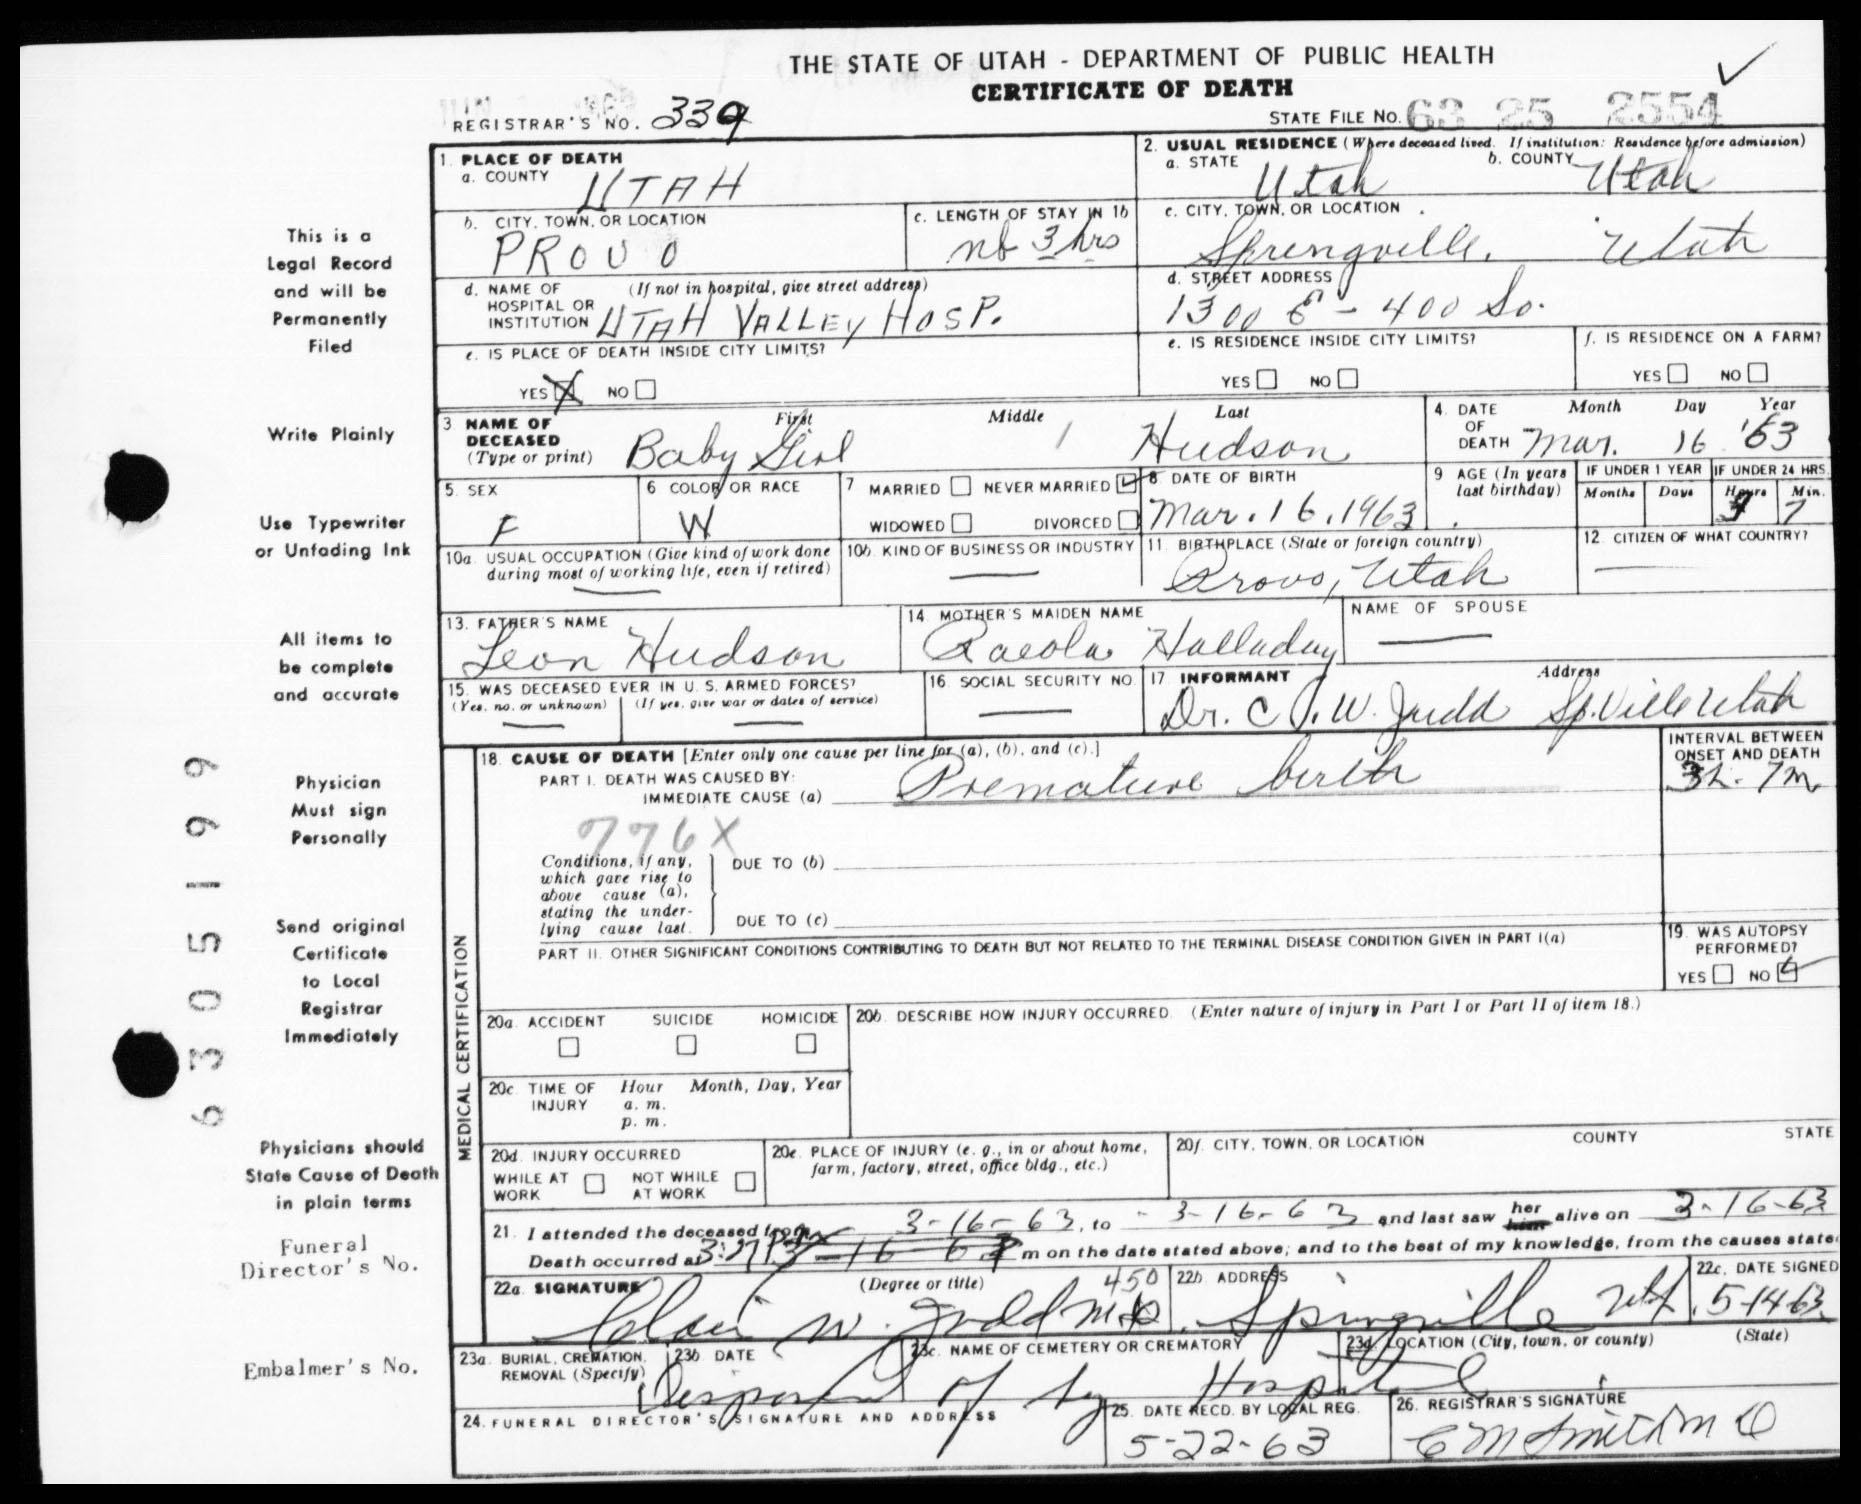 THE STATE OF UTAH - DEPARTMENT OF PUBLIC HEALTH
CERTIFICATE OF DEATH
REGISTRAR'S NO. 339
STATE FILE NO. 63 25 2554
This is a
Legal Record
and will be
Permanently
Filed
Write Plainly
Use Typewriter
or Unfading Ink
All items to
be complete
and accurate
Physician
Must sign
Personally
Send original
Certificate
to Local
Registrar
Immediately
Physicians should
State Cause of Death
in plain terms
Funeral
Director's No.
Embalmer's No.
6305199
1. PLACE OF DEATH
a. COUNTY UTAH
2. USUAL RESIDENCE (Where deceased lived. If institution: Residence before admission)
a. STATE Utah b. COUNTY Utah
b. CITY, TOWN, OR LOCATION PROVO
c. LENGTH OF STAY IN 1b nb 3 hrs
c. CITY, TOWN, OR LOCATION Springville, Utah
d. NAME OF HOSPITAL OR INSTITUTION (If not in hospital, give street address) UTAH VALLEY HOSP.
d. STREET ADDRESS 1300 E - 400 So.
e. IS PLACE OF DEATH INSIDE CITY LIMITS?
YES X NO
e. IS RESIDENCE INSIDE CITY LIMITS?
YES NO
f. IS RESIDENCE ON A FARM?
YES NO
3 NAME OF DECEASED (Type or print) First Middle Last
Baby Girl Hudson
4. DATE OF DEATH Month Day Year
Mar. 16 '63
5. SEX F
6 COLOR OR RACE W
7 MARRIED NEVER MARRIED
WIDOWED DIVORCED
8 DATE OF BIRTH Mar. 16, 1963
9 AGE (In years last birthday)
IF UNDER 1 YEAR Months Days
IF UNDER 24 HRS. Hours Min.
3 7
10a. USUAL OCCUPATION (Give kind of work done during most of working life, even if retired)
10b. KIND OF BUSINESS OR INDUSTRY
11. BIRTHPLACE (State or foreign country) Provo, Utah
12. CITIZEN OF WHAT COUNTRY?
13. FATHER'S NAME Leon Hudson
14. MOTHER'S MAIDEN NAME Raeola Halladay
NAME OF SPOUSE
15. WAS DECEASED EVER IN U. S. ARMED FORCES?
(Yes, no. or unknown) (If yes, give war or dates of service)
16. SOCIAL SECURITY NO.
17 INFORMANT Address
Dr. C. W. Judd Sp.Ville Utah
MEDICAL CERTIFICATION
18. CAUSE OF DEATH [Enter only one cause per line for (a), (b), and (c).]
PART I. DEATH WAS CAUSED BY:
IMMEDIATE CAUSE (a) Premature birth
INTERVAL BETWEEN ONSET AND DEATH
3h. 7m.
776X
Conditions, if any, which gave rise to above cause (a), stating the underlying cause last.
DUE TO (b)
DUE TO (c)
PART II. OTHER SIGNIFICANT CONDITIONS CONTRIBUTING TO DEATH BUT NOT RELATED TO THE TERMINAL DISEASE CONDITION GIVEN IN PART I(a)
19. WAS AUTOPSY PERFORMED?
YES NO
20a. ACCIDENT SUICIDE HOMICIDE
20b. DESCRIBE HOW INJURY OCCURRED. (Enter nature of injury in Part I or Part II of item 18.)
20c. TIME OF INJURY Hour Month, Day, Year
a. m.
p. m.
20d. INJURY OCCURRED
WHILE AT WORK NOT WHILE AT WORK
20e. PLACE OF INJURY (e. g., in or about home, farm, factory, street, office bldg., etc.)
20f. CITY, TOWN, OR LOCATION COUNTY STATE
21. I attended the deceased from 3-16-63, to 3-16-63 and last saw her him alive on 3-16-63
Death occurred at 3:27 P m on the date stated above; and to the best of my knowledge, from the causes state
22a. SIGNATURE (Degree or title) 450
Clair W. Judd MD.
22b. ADDRESS Springville Utah
22c. DATE SIGNED 5-14-63
23a. BURIAL, CREMATION, REMOVAL (Specify)
23b. DATE
23c. NAME OF CEMETERY OR CREMATORY
23d. LOCATION (City, town, or county) (State)
Disposed of by Hospital
24. FUNERAL DIRECTOR'S SIGNATURE AND ADDRESS
25. DATE RECD. BY LOCAL REG. 5-22-63
26. REGISTRAR'S SIGNATURE C M Smith M D